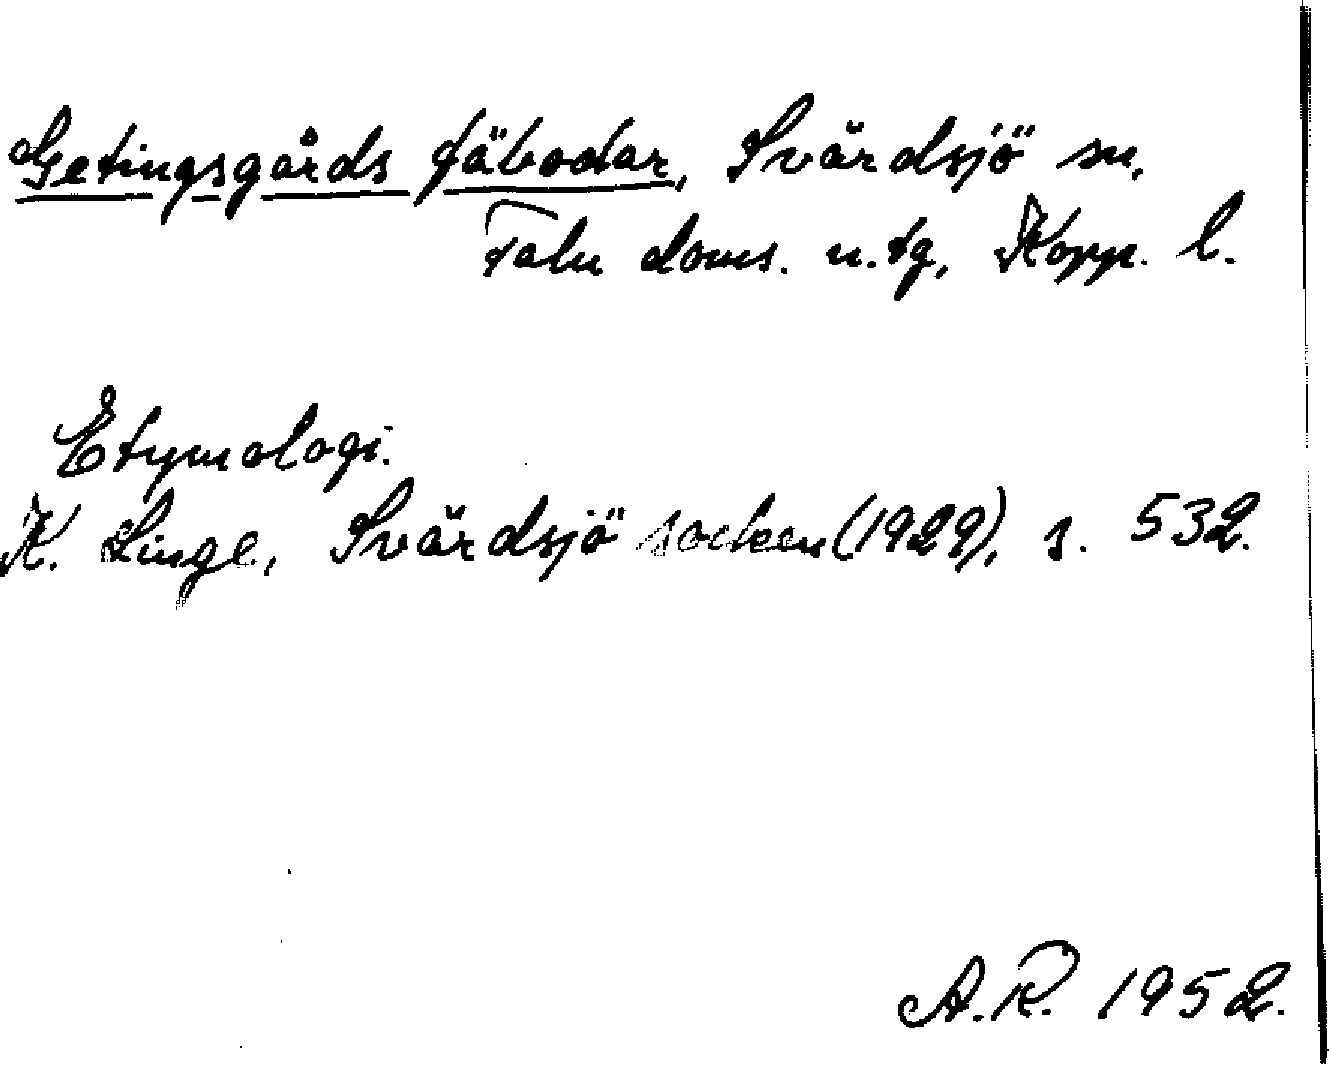 Getingsgårds fäbodar, Svärdsjö sn,
Falu doms. n. tg, Kopp. l.
Etymologi.
K. Linge, Svärdsjö socken (1929), s. 532.
A.R. 1952.